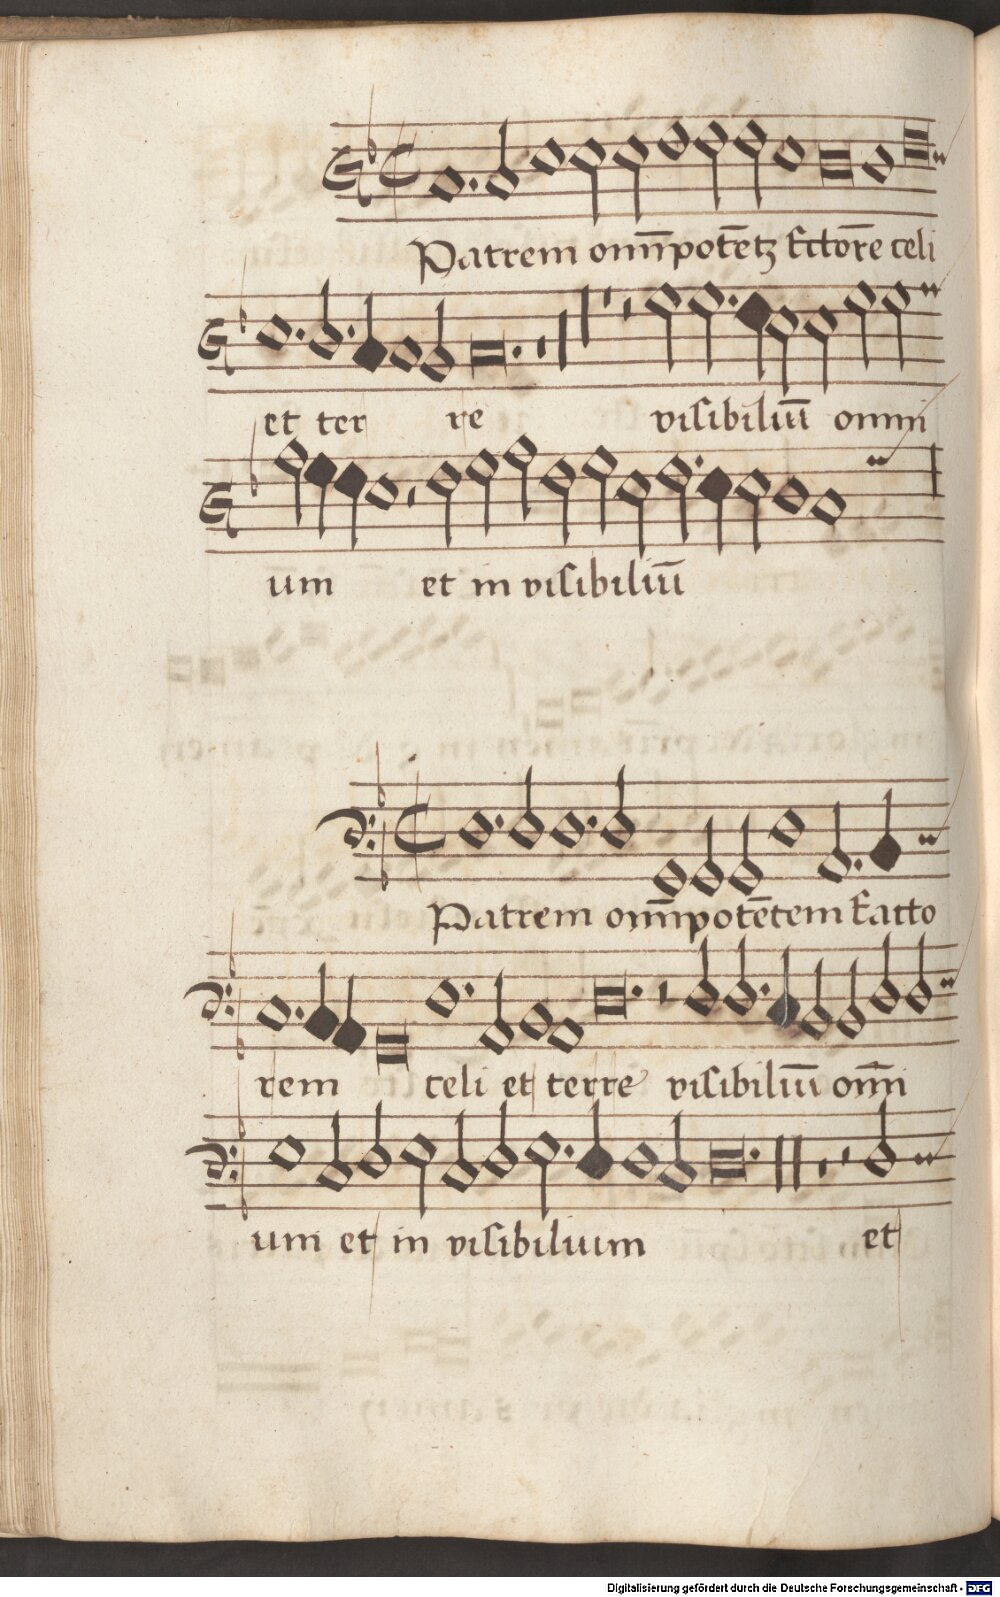 Patrem om̄potētꝫ fctōre celi
et ter re visibiliū omni
um et in visibiliū
Patrem om̄potētem facto
rem celi et terre visibiliū om̄i
um et in visibilium et
Digitalisierung gefördert durch die Deutsche Forschungsgemeinschaft - DFG